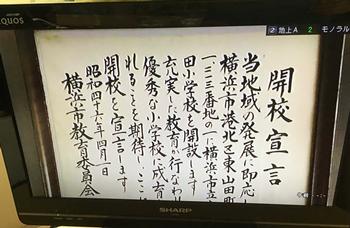 QUOS
地上A 2 モノラル
開校宣言
当地域の発展に即応し
横浜市港北区東山田町
一、三三番地の一に横浜市立
田小学校を開設します
充実した教育が行なわれ
優秀な小学校に成育
れることを期待しここに
開校を宣言します
昭和四十六年四月一日
横浜市教育委員会
SHARP